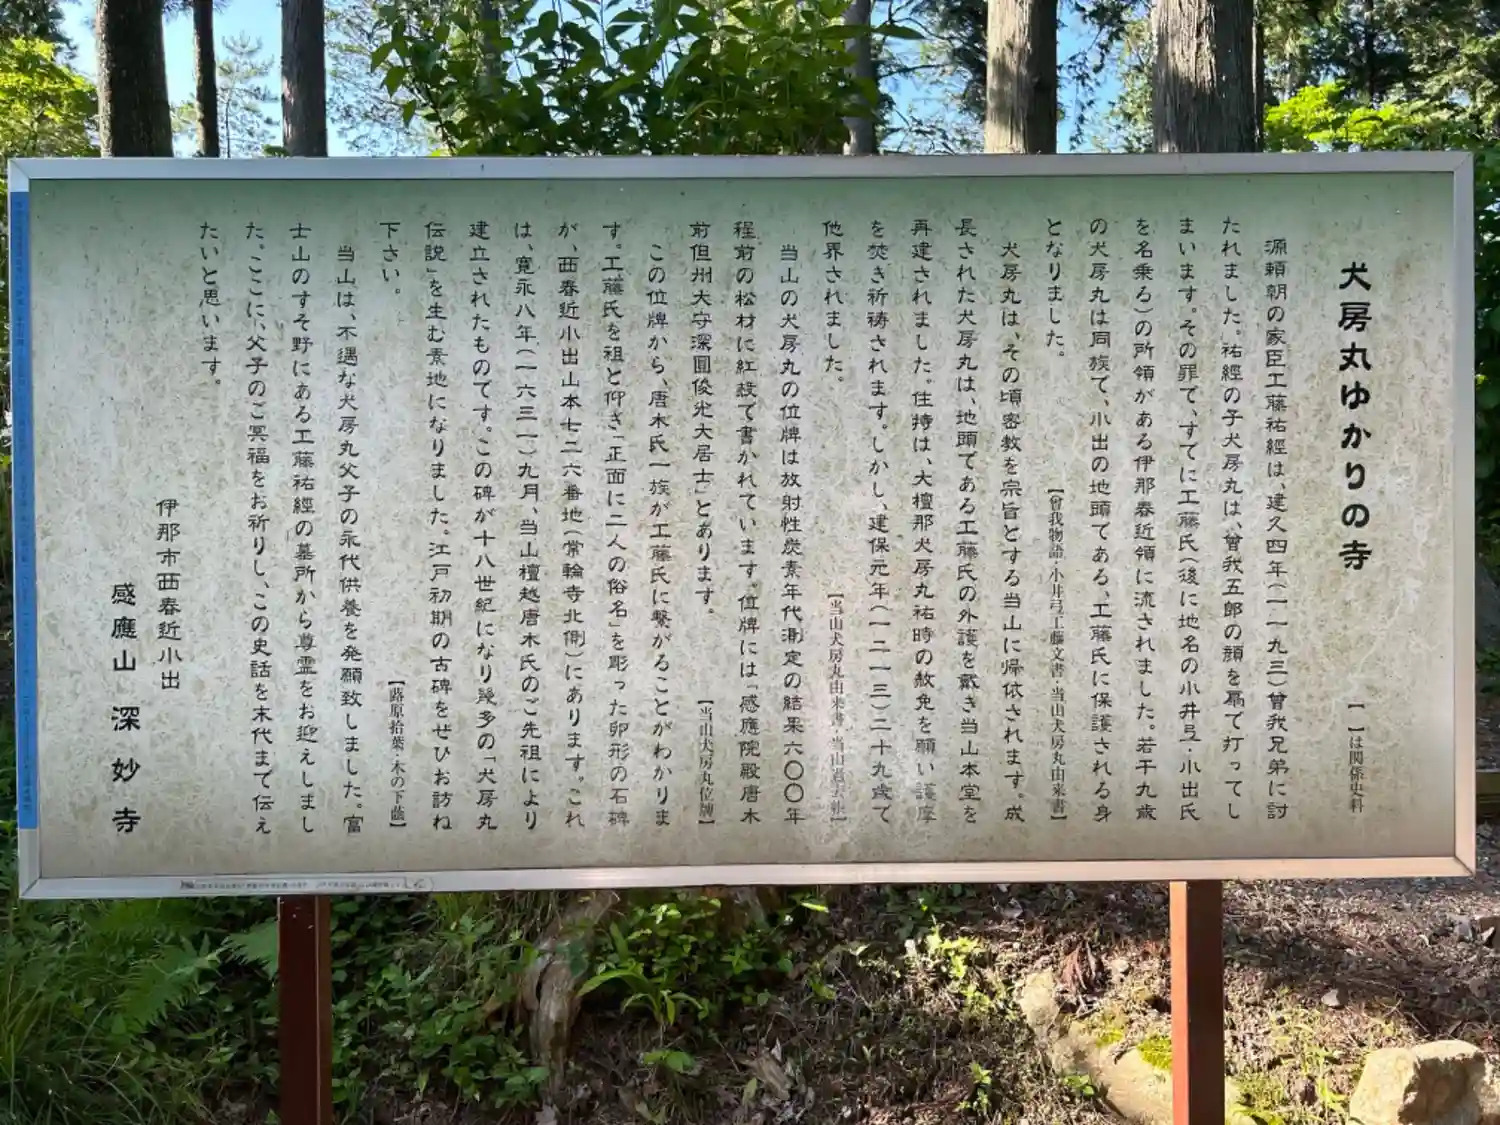 犬房丸ゆかりの寺
【 】は関係史料
源頼朝の家臣工藤祐經は、建久四年(一一九三)曾我兄弟に討
たれました。祐經の子犬房丸は、曾我五郎の顔を扇で打ってし
まいます。その罪で、すでに工藤氏(後に地名の小井弖・小出氏
を名乗る)の所領がある伊那春近領に流されました。若干九歳
の犬房丸は同族で、小出の地頭である、工藤氏に保護される身
となりました。
【曾我物語・小井弖工藤文書・当山犬房丸由来書】
犬房丸は、その頃密教を宗旨とする当山に帰依されます。成
長された犬房丸は、地頭である工藤氏の外護を戴き当山本堂を
再建されました。住持は、大檀那犬房丸祐時の赦免を願い護摩
を焚き祈祷されます。しかし、建保元年(一二一三)二十九歳で
他界されました。
【当山犬房丸由来書・当山過去帳】
当山の犬房丸の位牌は放射性炭素年代測定の結果六〇〇年
程前の松材に紅殻で書かれています。位牌には「感應院殿唐木
前但州大守深圓俊光大居士」とあります。
【当山犬房丸位牌】
この位牌から、唐木氏一族が工藤氏に繋がることがわかりま
す。工藤氏を祖と仰ぎ「正面に二人の俗名」を彫った卵形の石碑
が、西春近小出山本七二六番地(常輪寺北側)にあります。これ
は、寛永八年(一六三一)九月、当山檀越唐木氏のご先祖により
建立されたものです。この碑が十八世紀になり幾多の「犬房丸
伝説」を生む素地になりました。江戸初期の古碑をぜひお訪ね
下さい。
【蕗原拾葉・木の下蔭】
当山は、不遇な犬房丸父子の永代供養を発願致しました。富
士山のすそ野にある工藤祐經の墓所から尊霊をお迎えしまし
た。ここに、父子のご冥福をお祈りし、この史話を末代まで伝え
たいと思います。
伊那市西春近小出
感應山 深妙寺